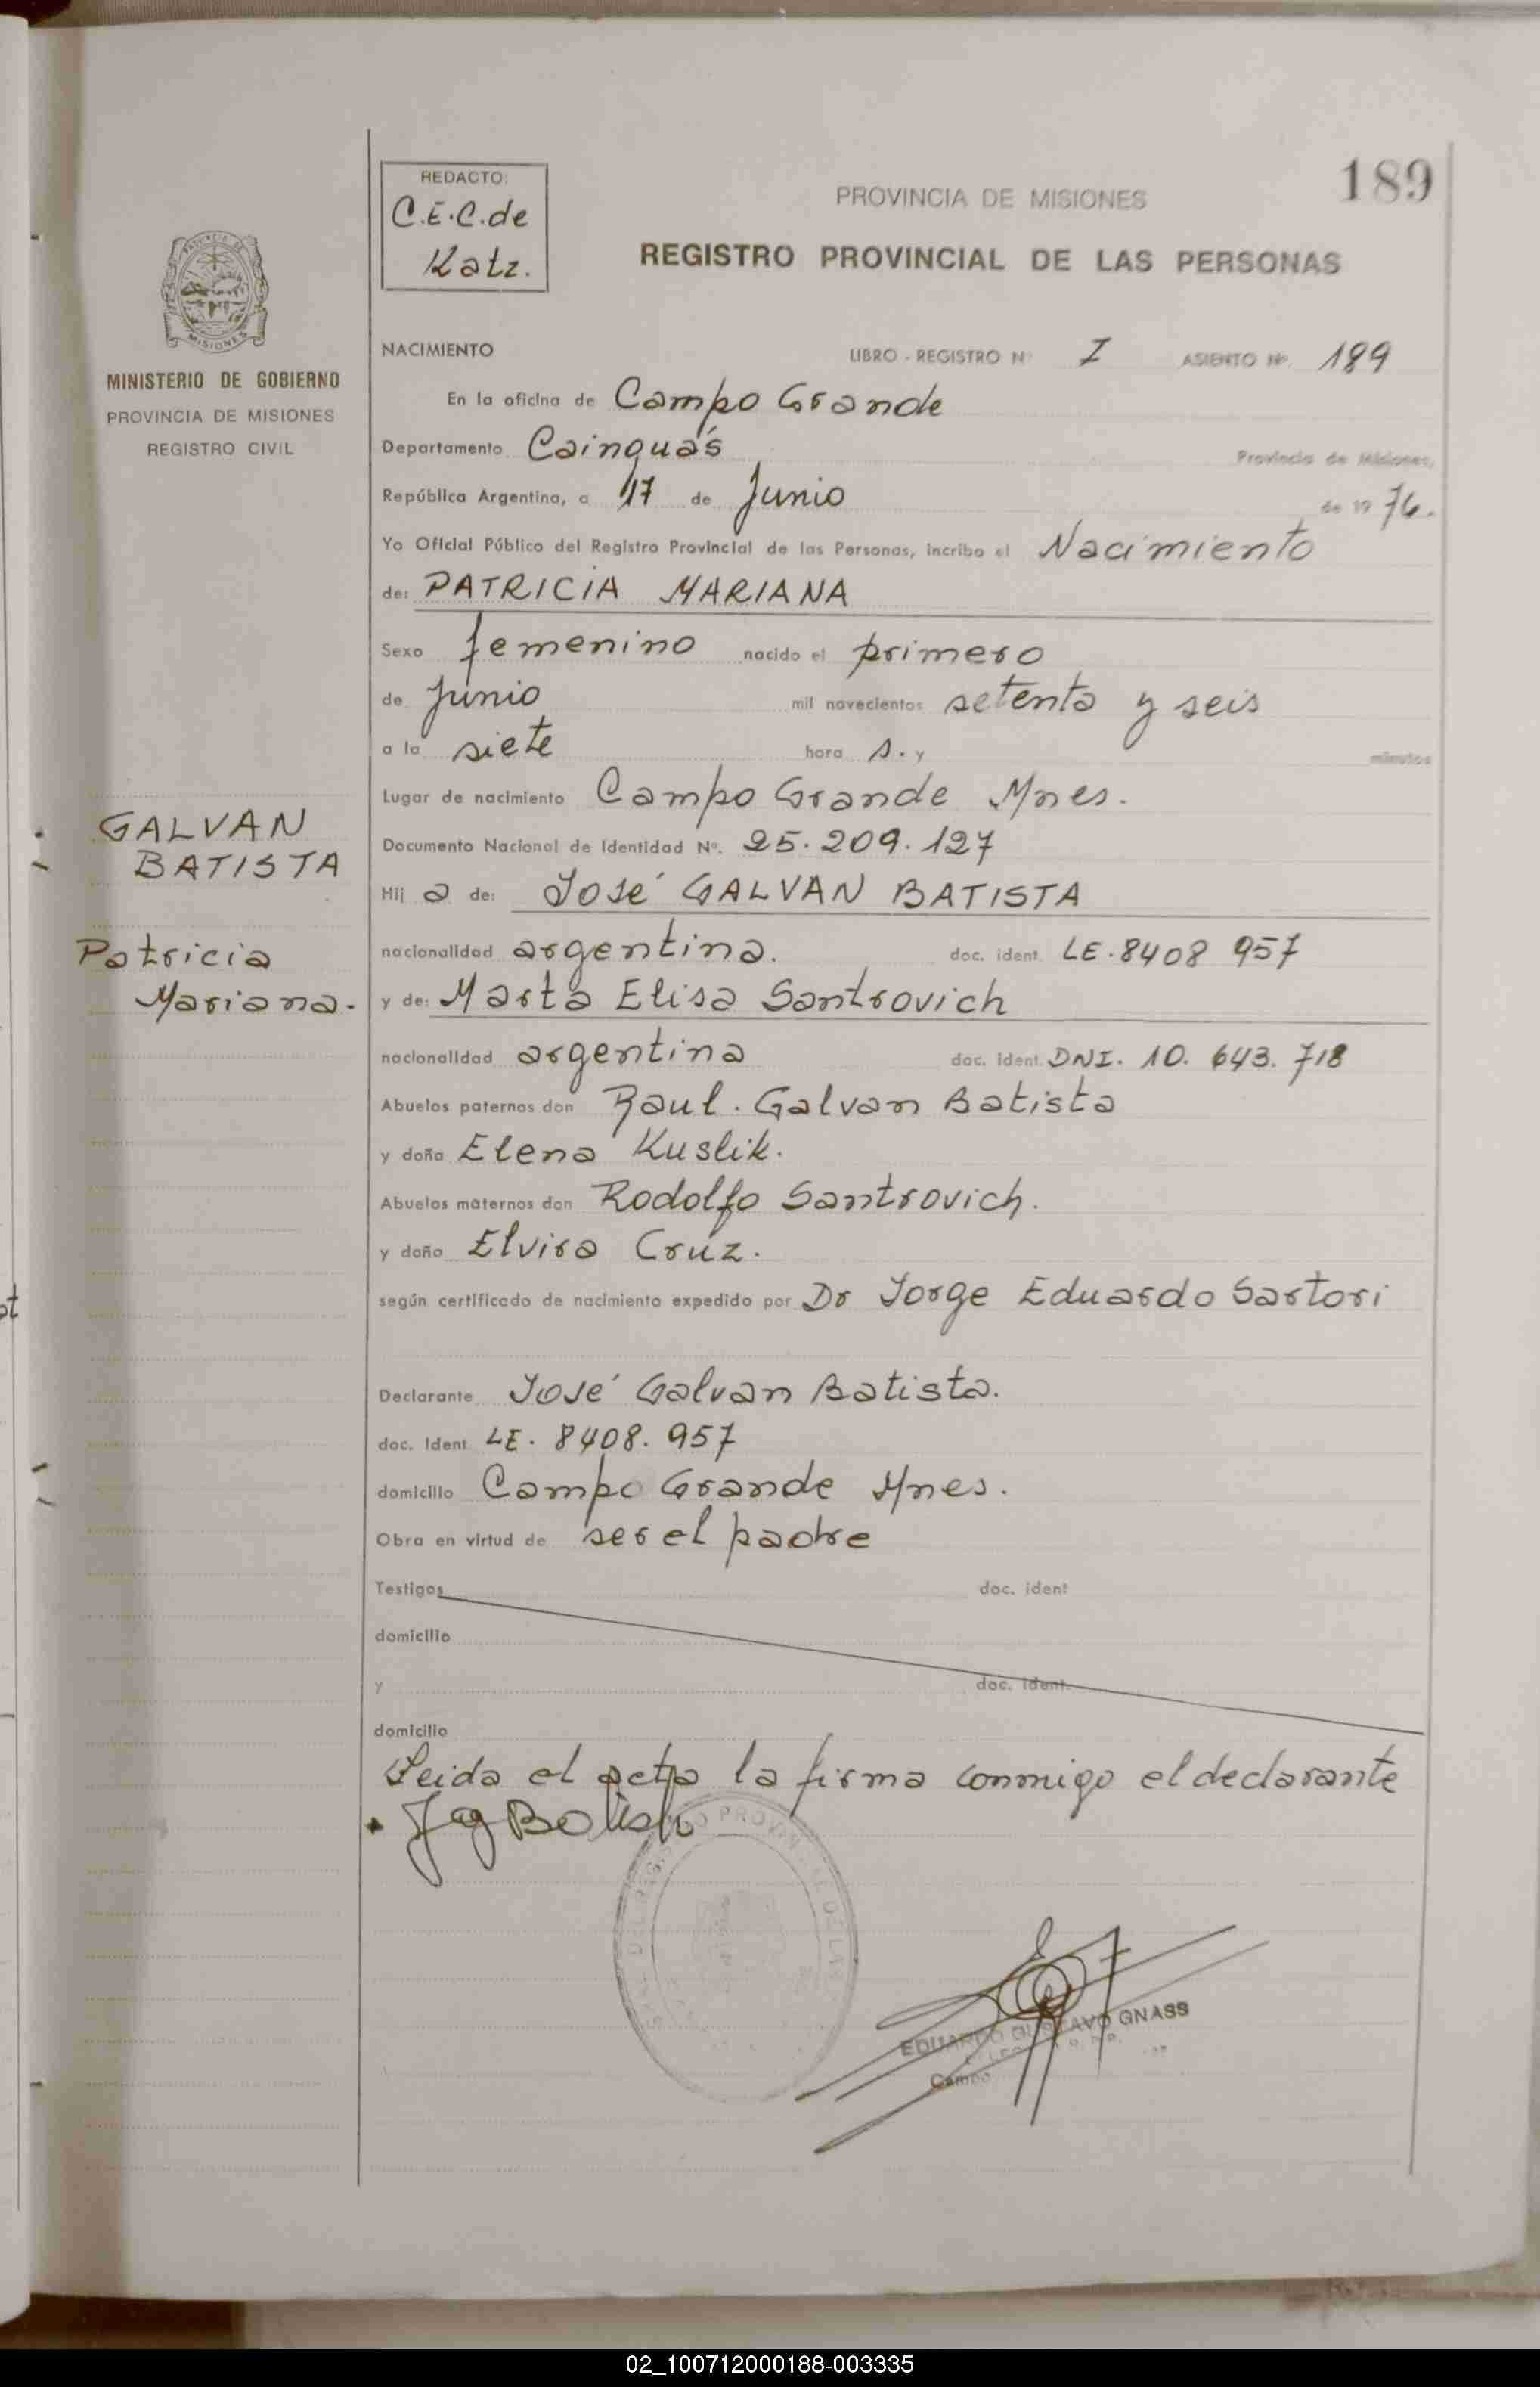 189
REDACTO:
C.E.C. de
Katz.
PROVINCIA DE MISIONES
REGISTRO PROVINCIAL DE LAS PERSONAS
MISIONES
MINISTERIO DE GOBIERNO
PROVINCIA DE MISIONES
REGISTRO CIVIL
NACIMIENTO LIBRO - REGISTRO Nº I ASIENTO Nº. 189
En la oficina de Campo Grande
Departamento Cainguás Provincia de Misiones,
República Argentina, a 17 de Junio de 19 76.
Yo Oficial Público del Registro Provincial de las Personas, incribo el Nacimiento
de: PATRICIA MARIANA
Sexo femenino nacido el primero
de junio mil novecientos setenta y seis
a la siete hora s. y minutos
Lugar de nacimiento Campo Grande Mnes.
Documento Nacional de Identidad Nº. 25.209.127
GALVAN
BATISTA
Patricia
Mariana.
Hij a de: José GALVAN BATISTA
nacionalidad argentina. doc. ident. LE. 8408 957
y de: Marta Elisa Santrovich
nacionalidad argentina doc. ident. DNI. 10. 643. 718
Abuelos paternos don Raul. Galvan Batista
y doña Elena Kuslik.
Abuelos maternos don Rodolfo Santrovich.
y doña Elvira Cruz.
según certificado de nacimiento expedido por Dr Jorge Eduardo Sartori
Declarante José Galvan Batista.
doc. Ident. LE. 8408. 957
domicilio Campo Grande Mnes.
Obra en virtud de ser el padre
Testigos doc. ident
domicilio
y doc. ident.
domicilio
Leida el acta la firma conmigo el declarante
EDUARDO GUSTAVO GNASS
Campo
02_100712000188-003335